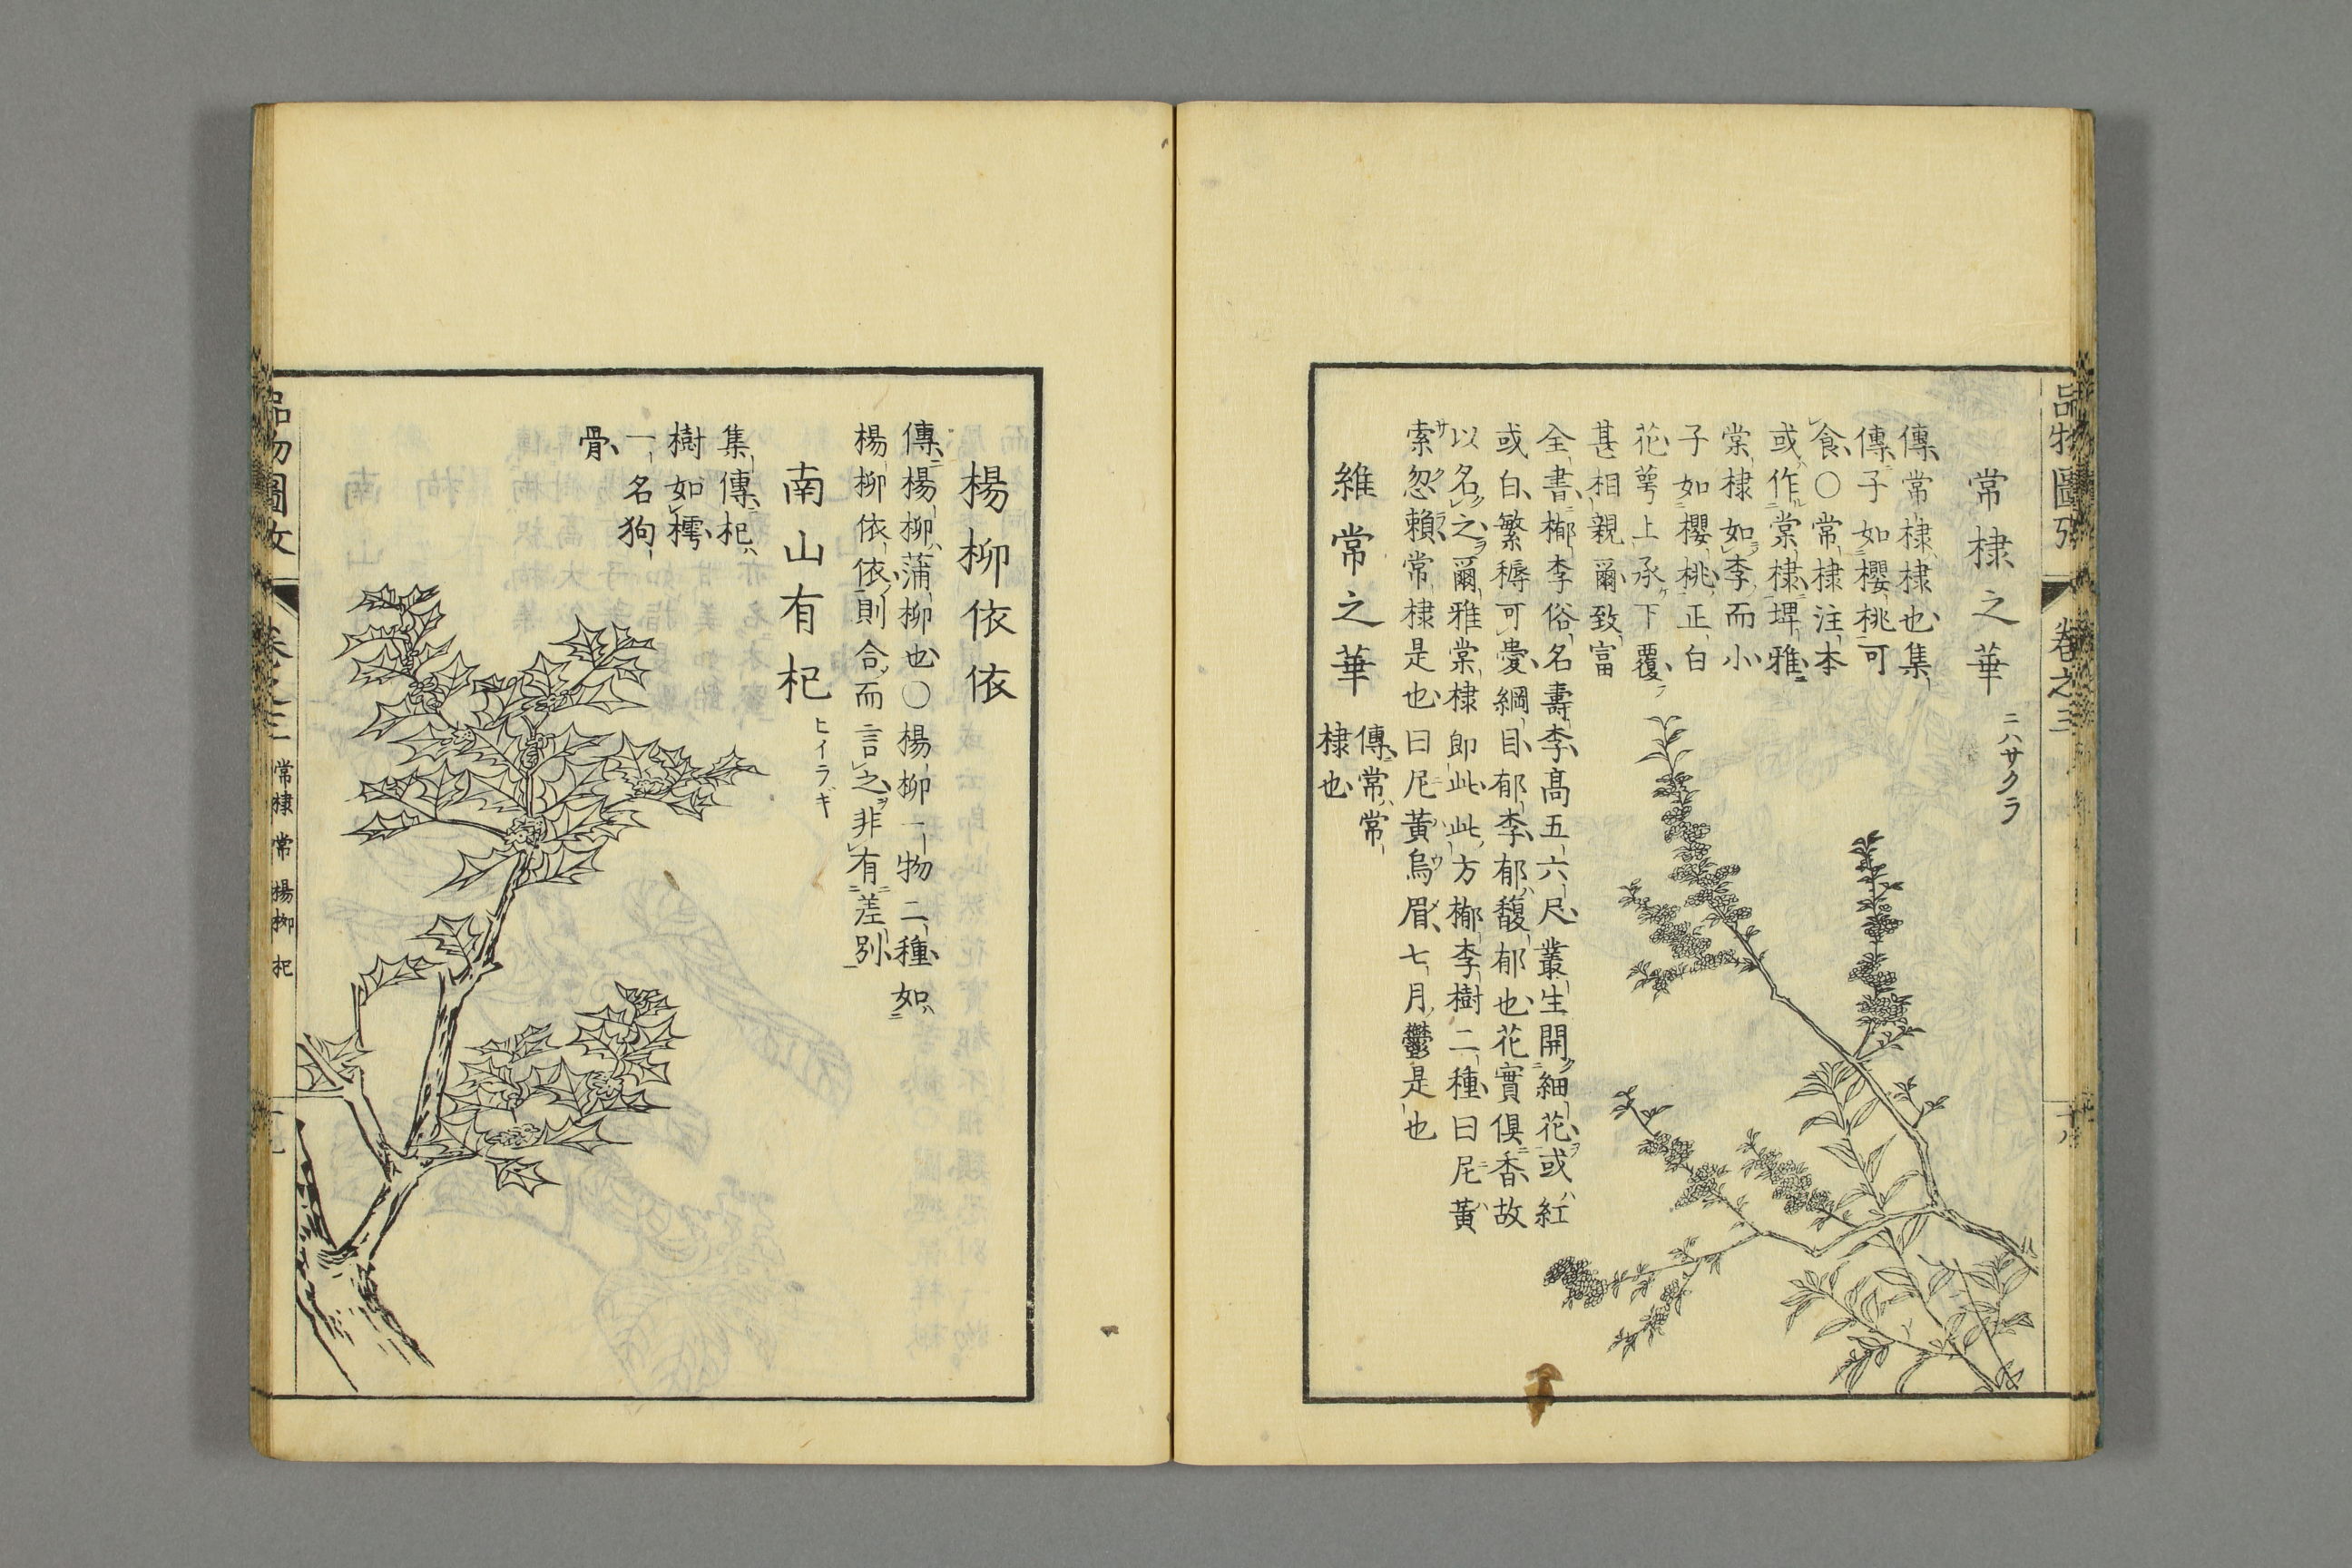 品物圖攷
卷之三
常棣之華
ニハサクラ
傳常棣棣也集
傳子如櫻桃可
食○常棣注本
或作棠棣埤雅
棠棣如李而小
子如櫻桃正白
花萼上承下覆
甚相親爾致富
全書郁李俗名壽李高五六尺叢生開細花或紅
或白繁縟可愛綱目郁李郁馥郁也花實俱香故
以名之爾雅棠棣即此此方郁李樹二種曰尼黃
索忽賴常棣是也曰尼黃烏眉七月鬱是也
維常之華
傳常常
棣也
楊柳依依
傳楊柳蒲柳也○楊柳一物二種如
楊柳依依則合而言之非有差別
南山有杞
ヒイラギ
集傳杞
樹如樗
一名狗
骨
品物圖攷
卷之三
常棣 常 楊柳 杞